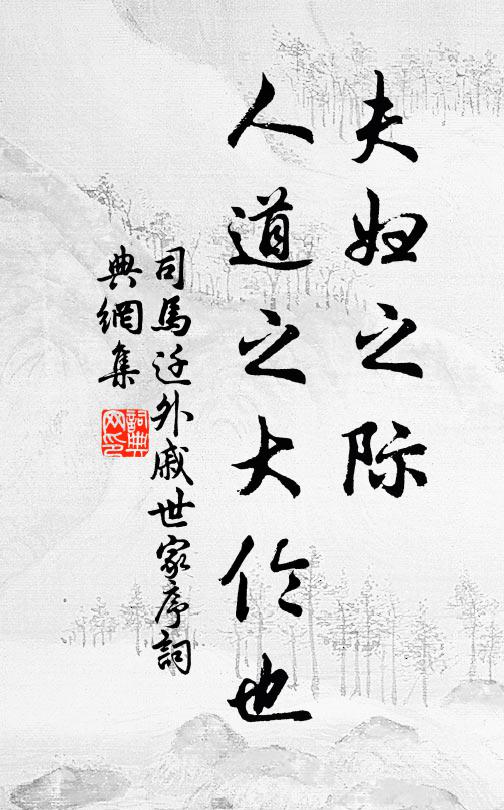 夫妇之际
人道之大伦也
司馬迁外戚世家序詞
典網集
詞典
网印